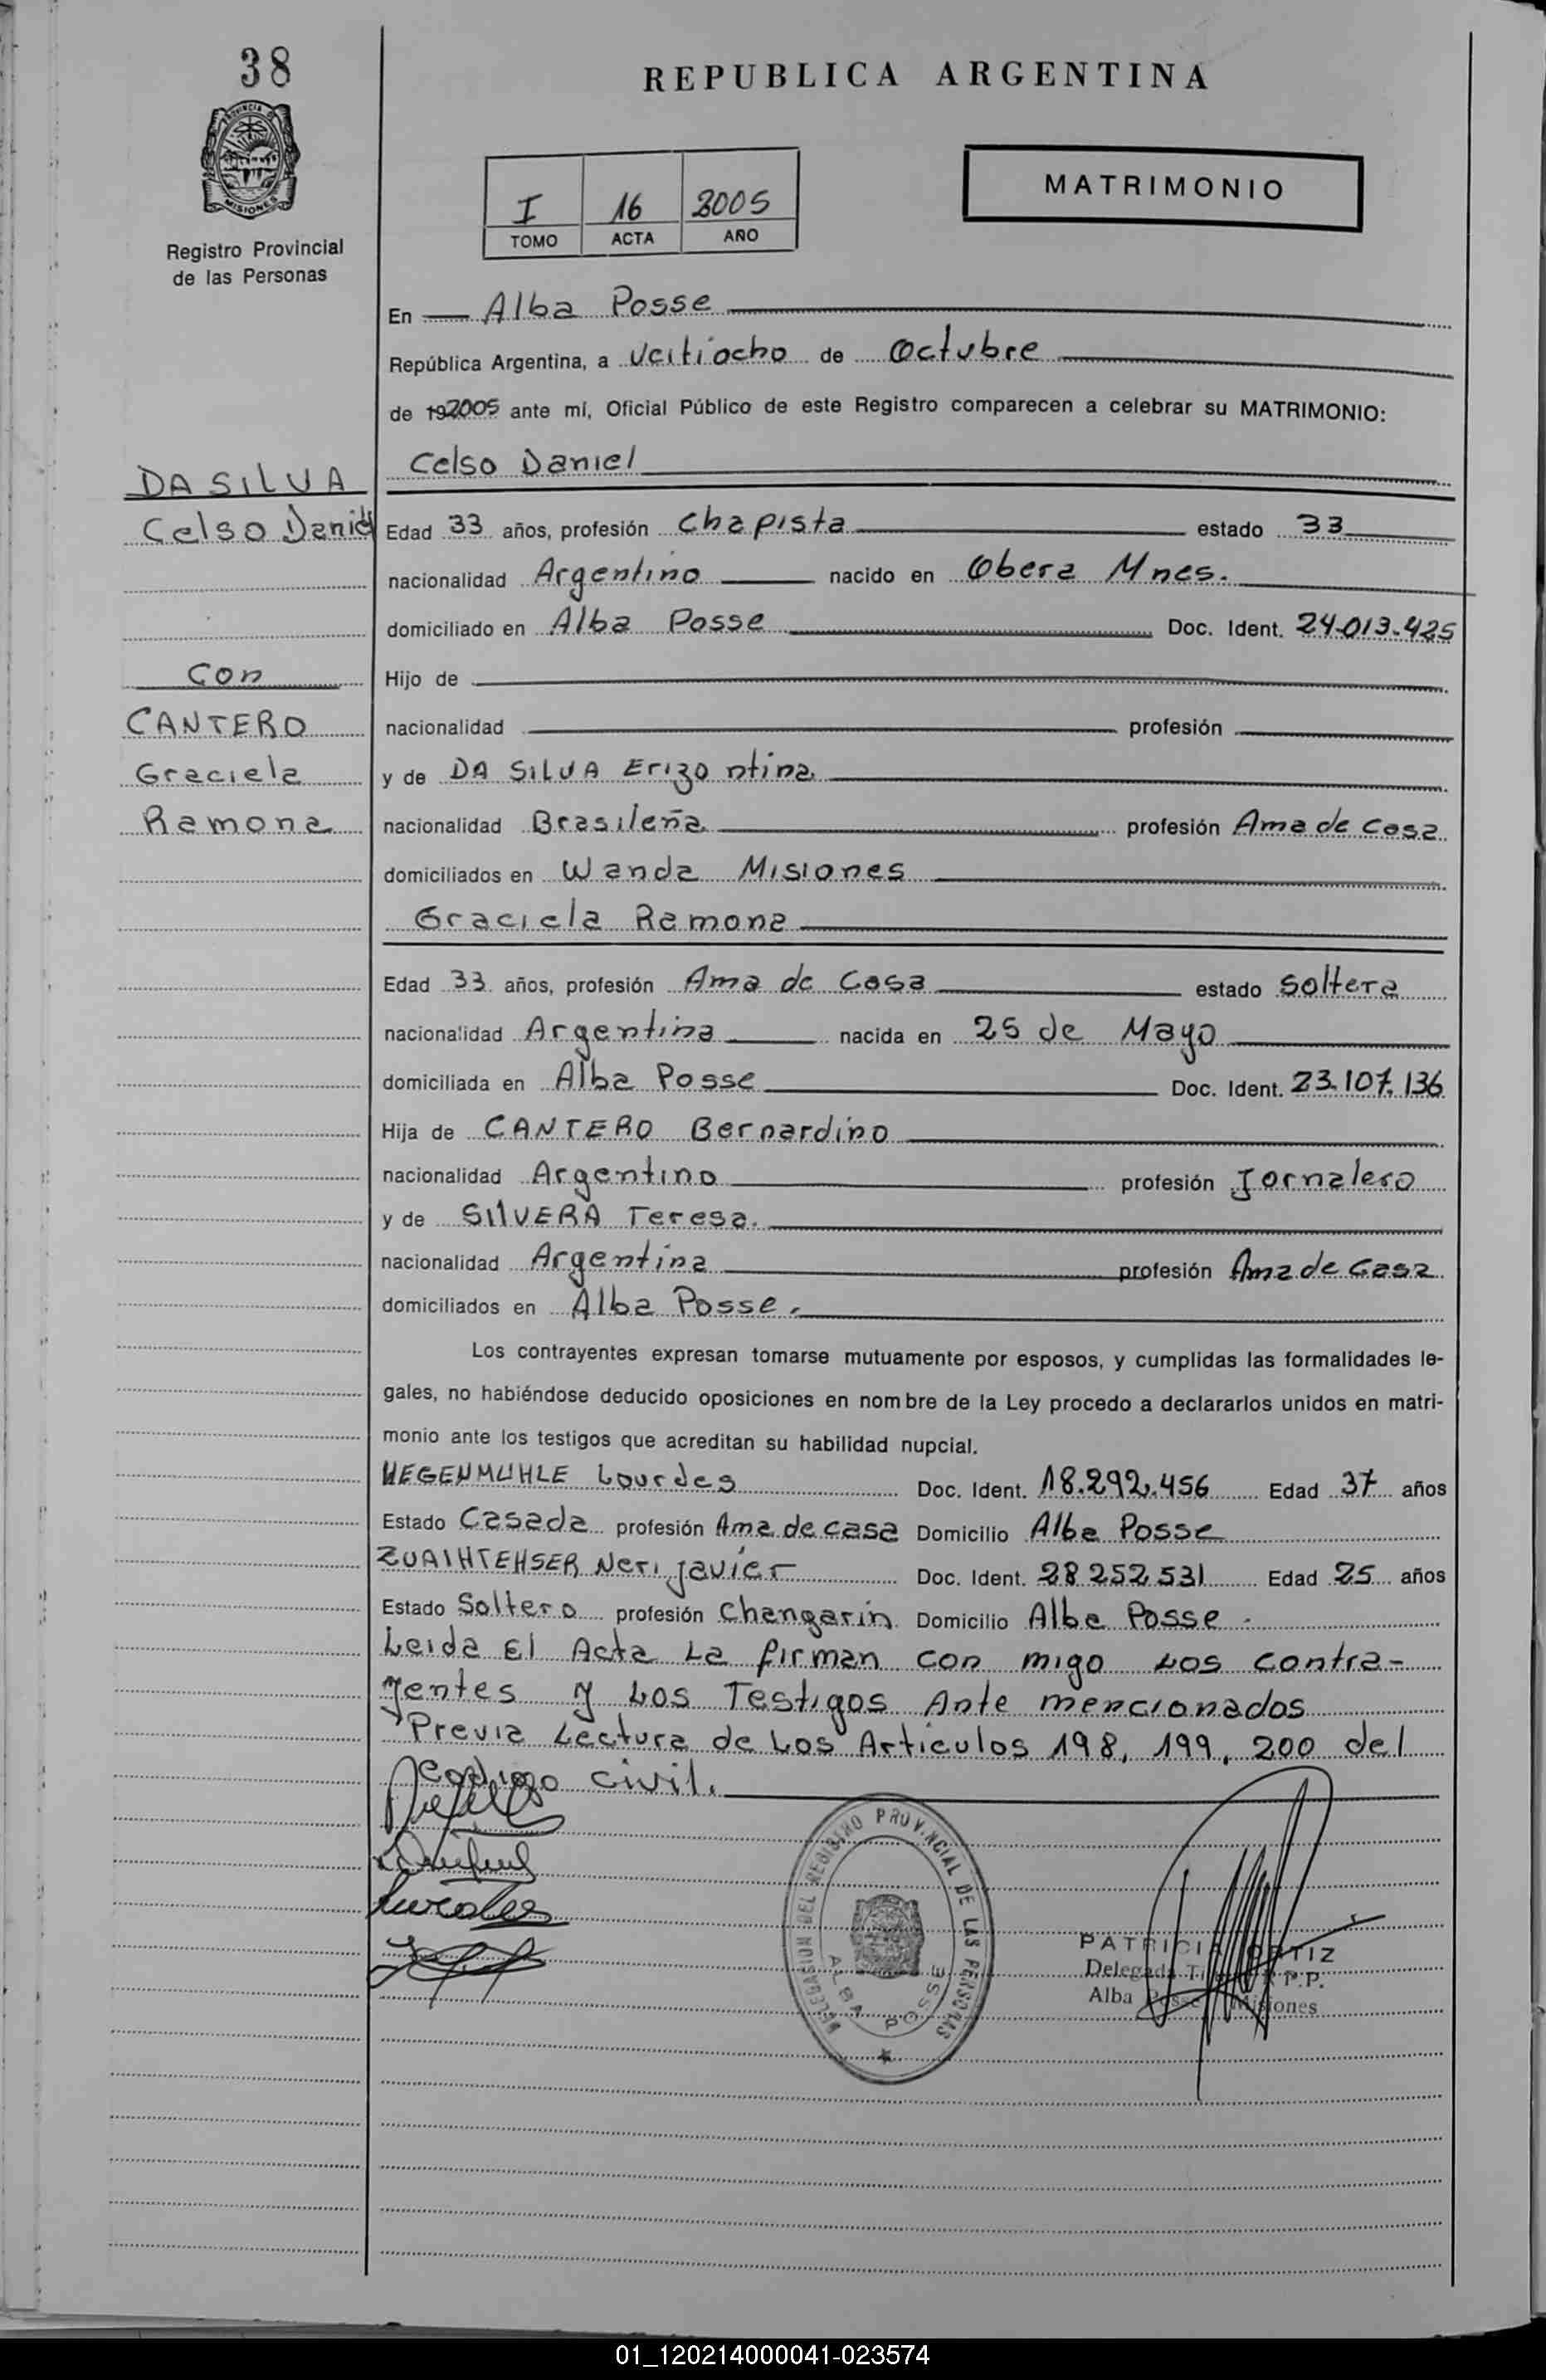 38
REPUBLICA ARGENTINA
PROVINCIA DE
MISIONES
Registro Provincial
de las Personas
I 16 2005
TOMO ACTA AÑO
MATRIMONIO
En Alba Posse
República Argentina, a Veitiocho de Octubre
de 192005 ante mí, Oficial Público de este Registro comparecen a celebrar su MATRIMONIO:
DA SILVA
Celso Daniel
con
CANTERO
Graciela
Ramona
Celso Daniel
Edad 33 años, profesión Chapista estado 33
nacionalidad Argentino nacido en Obera Mnes.
domiciliado en Alba Posse Doc. Ident. 24.013.425
Hijo de
nacionalidad profesión
y de DA SILVA Erizo ntina
nacionalidad Brasileña profesión Ama de Casa
domiciliados en Wanda Misiones
Graciela Ramona
Edad 33 años, profesión Ama de Casa estado Soltera
nacionalidad Argentina nacida en 25 de Mayo
domiciliada en Alba Posse Doc. Ident. 23.107.136
Hija de CANTERO Bernardino
nacionalidad Argentino profesión Jornalero
y de SILVERA Teresa.
nacionalidad Argentina profesión Ama de Casa
domiciliados en Alba Posse.
Los contrayentes expresan tomarse mutuamente por esposos, y cumplidas las formalidades le-
gales, no habiéndose deducido oposiciones en nombre de la Ley procedo a declararlos unidos en matri-
monio ante los testigos que acreditan su habilidad nupcial.
HEGENMUHLE Lourdes Doc. Ident. 18.292.456 Edad 37 años
Estado Casada profesión Ama de casa Domicilio Alba Posse
ZUAIHTEHSER Neri javier Doc. Ident. 28 252 531 Edad 25 años
Estado Soltero profesión Changarin Domicilio Alba Posse.
Leida El Acta La firman con migo Los contra-
yentes y Los Testigos Ante mencionados
Previa Lectura de Los Articulos 198, 199, 200 del
codigo civil.
DELEGASION DEL REGISTRO PROVINCIAL DE LAS PERSONAS
ALBA POSSE
PATRICIA ORTIZ
Delegada P.P.
Alba Posse Misiones
01_120214000041-023574